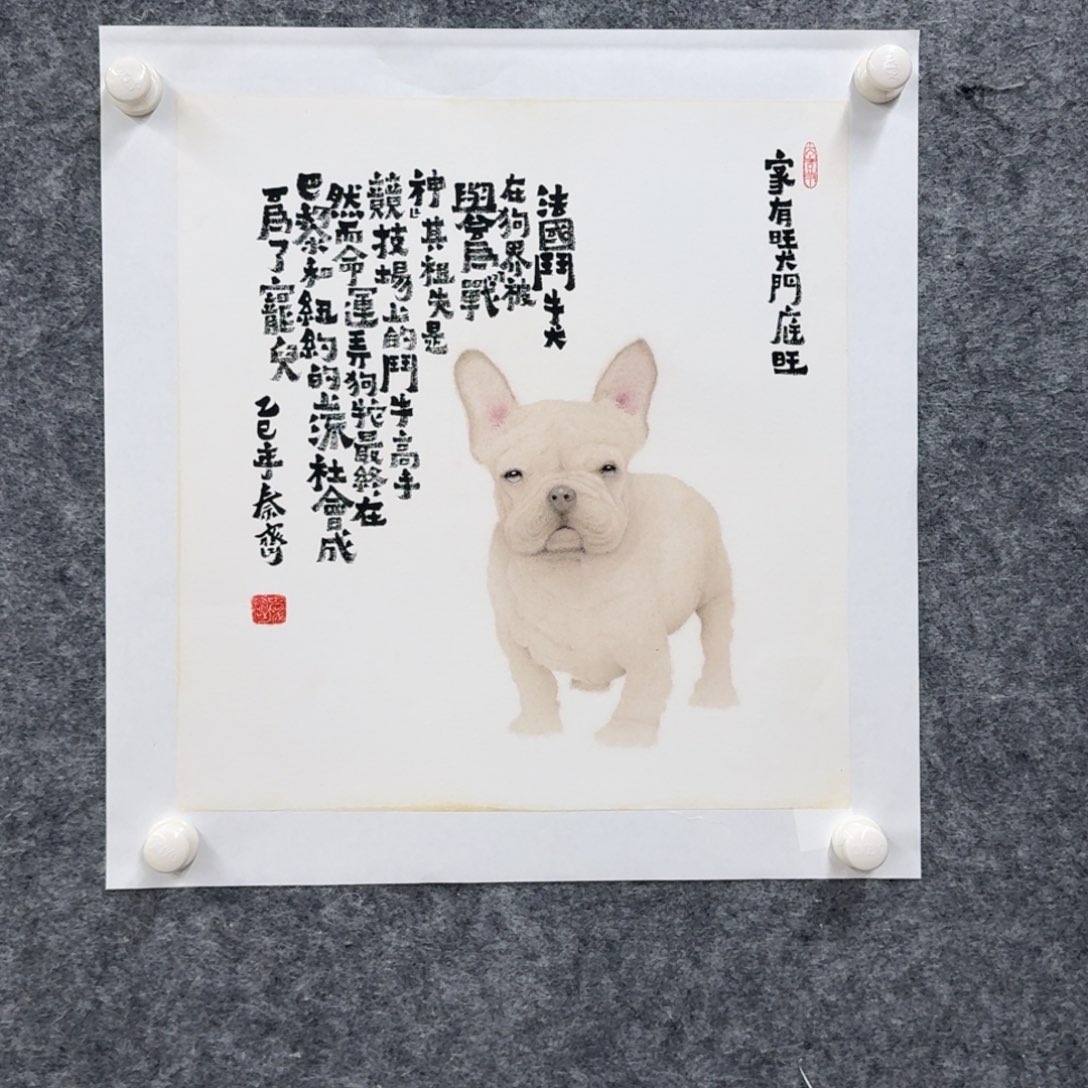 家有旺犬門庭旺
法國鬥牛犬
在狗界被
譽爲戰
神」其祖先是
競技場上的鬥牛高手
然而命運弄狗牠最終在
巴黎和紐約的上流社會成
爲了寵兒
乙巳年